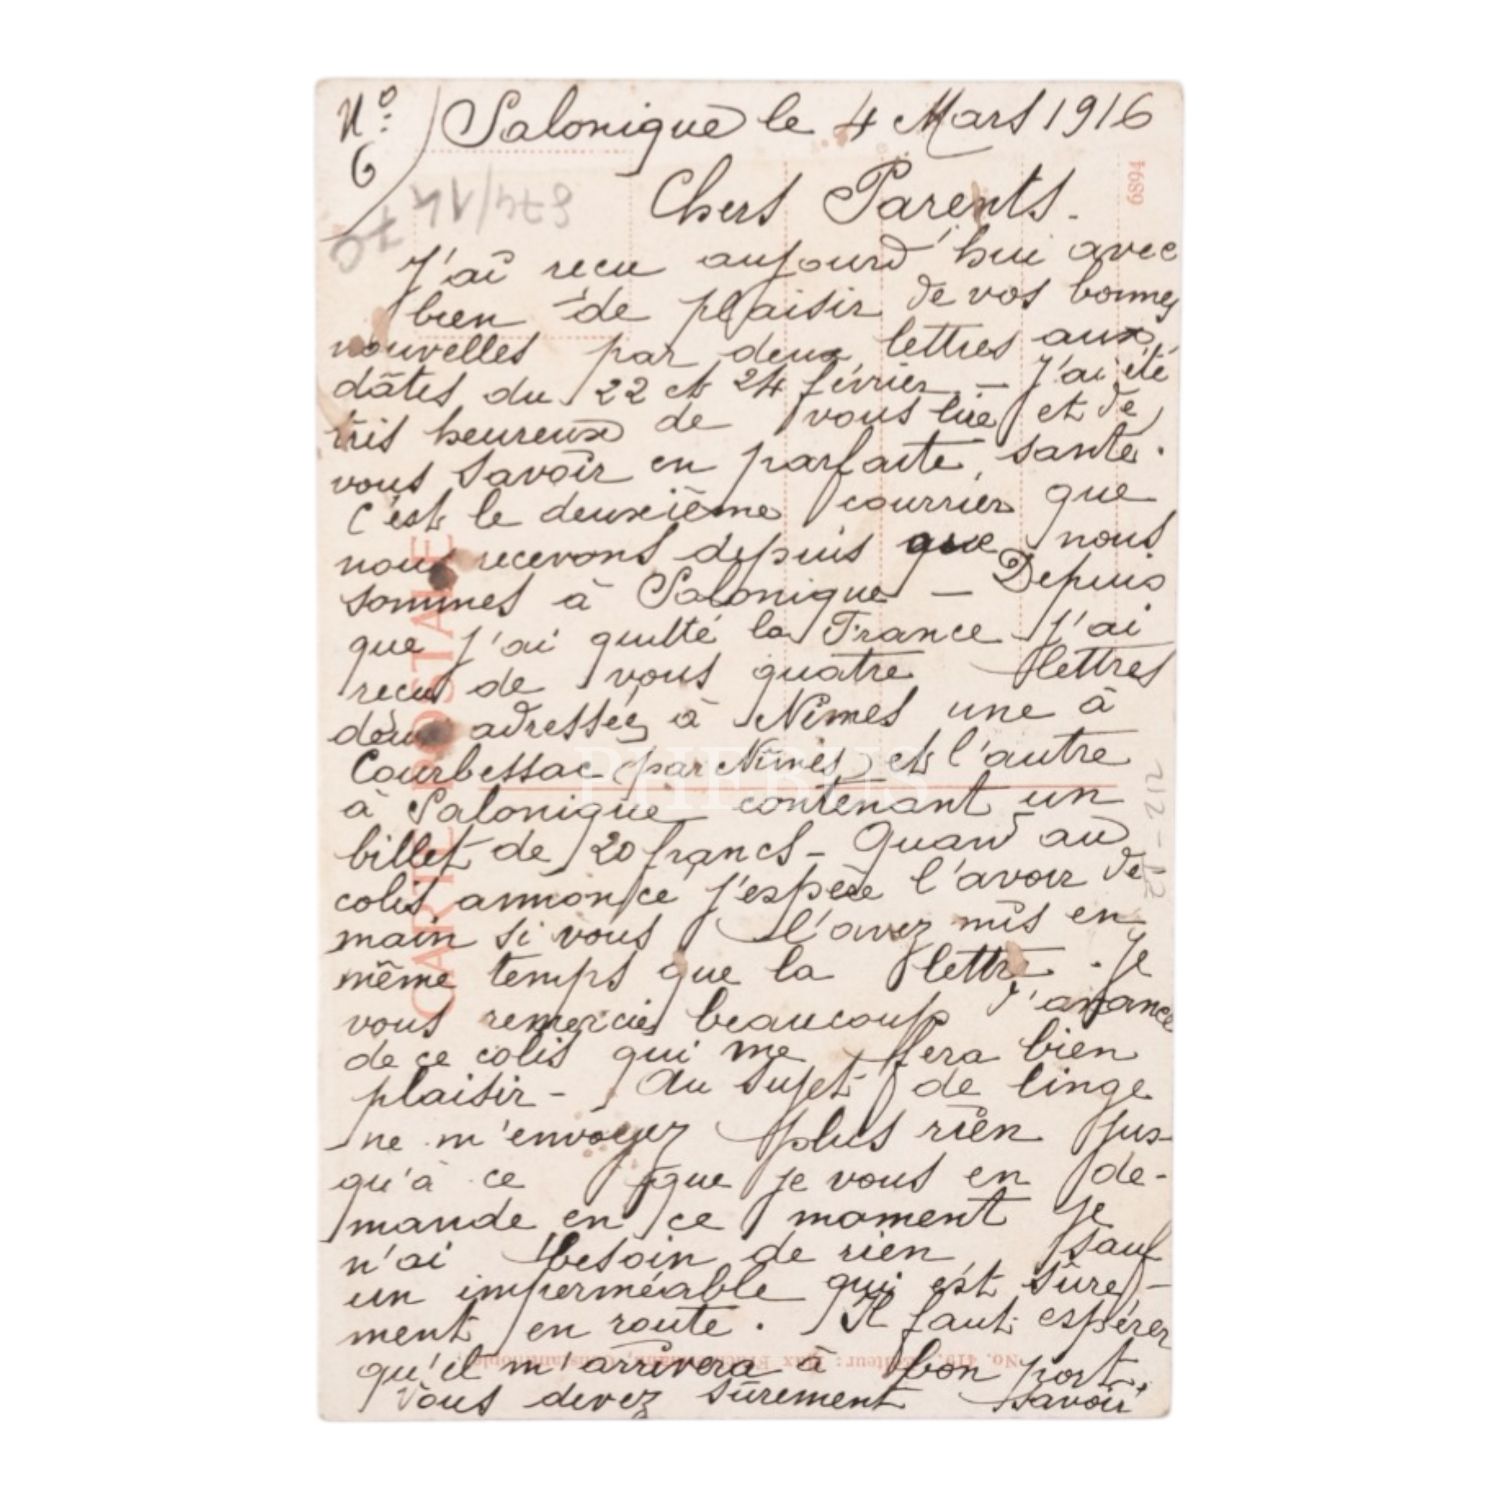 N° 6) Salonique le 4 Mars 1916
6894
874/14
70
Chers Parents.
J'ai recu aujourd'hui avec
bien de plaisir de vos bonnes
nouvelles par deux lettres aux
dâtes du 22 et 24 février. — J'ai été
très heureux de vous lire et de
vous savoir en parfaite santé.
C'est le deuxième courrier que
nous recevons depuis que nous
sommes à Salonique — Depuis
que j'ai quitté la France j'ai
recu de vous quatre lettres
deux adressées à Nimes une à
Courbessac (par Nimes) et l'autre
à Salonique contenant un
billet de 20 francs — Quand au
colis annoncé j'espère l'avoir de
main si vous l'avez mis en
même temps que la lettre. Je
vous remercie beaucoup d'avance
de ce colis qui me fera bien
plaisir — Au sujet de linge
ne m'envoyez plus rien jus-
qu'à ce que je vous en de-
mande en ce moment je
n'ai besoin de rien sauf
un imperméable qui est sûre-
ment en route. Il faut espérer
qu'il m'arrivera à bon port.
Vous devez sûrement savoir
CARTE POSTALE
212-12
No. 419. Editeur: Max Fruchtermann, Constantinople
PHEBUS